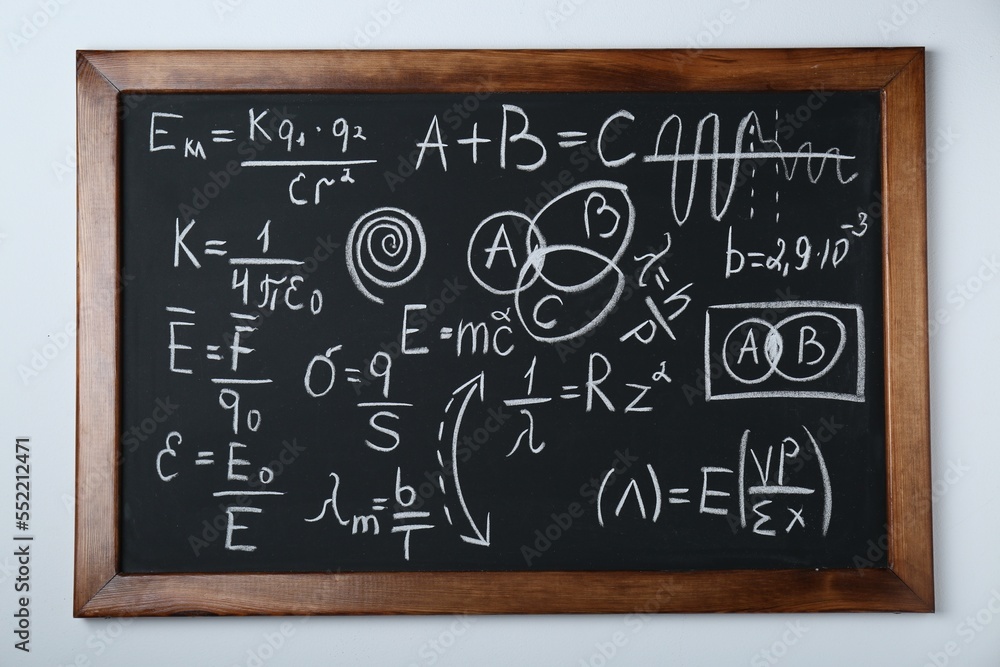 Eкл = Kq₁·q₂ / εr²
A+B=C
K = 1 / 4πε₀
A B C
λ = b/T
b=2,9·10⁻³
E̅ = F̅ / q₀
E=mc²
σ = q / S
1/λ = Rz²
A B
ε = E₀ / E
λm = b / T
(Λ) = E(VP / Σx)
Adobe Stock | #552212471